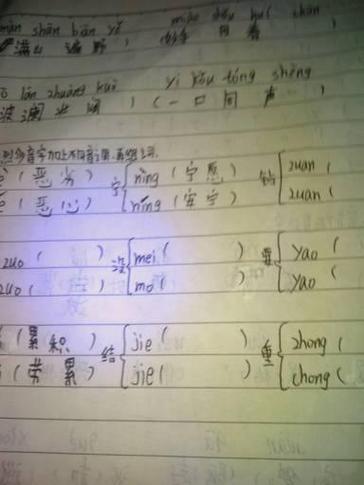 mǎn shān biàn yě miào shǒu huí chūn
满山遍野 妙手回春
lán zhuàng kuò yì kǒu tóng shēng
波澜壮阔 (一口同声)
多音字加上不同音调,再组词.
(恶劣) 宁 nìng (宁愿) 钻 zuan (
(恶心) níng (安宁) zuan (
zuo ( ) 没 mei ( ) 要 yao (
zuo ( ) mo ( ) yao (
(累积) 结 jie ( ) 重 zhong (
(劳累) jie ( ) chong (